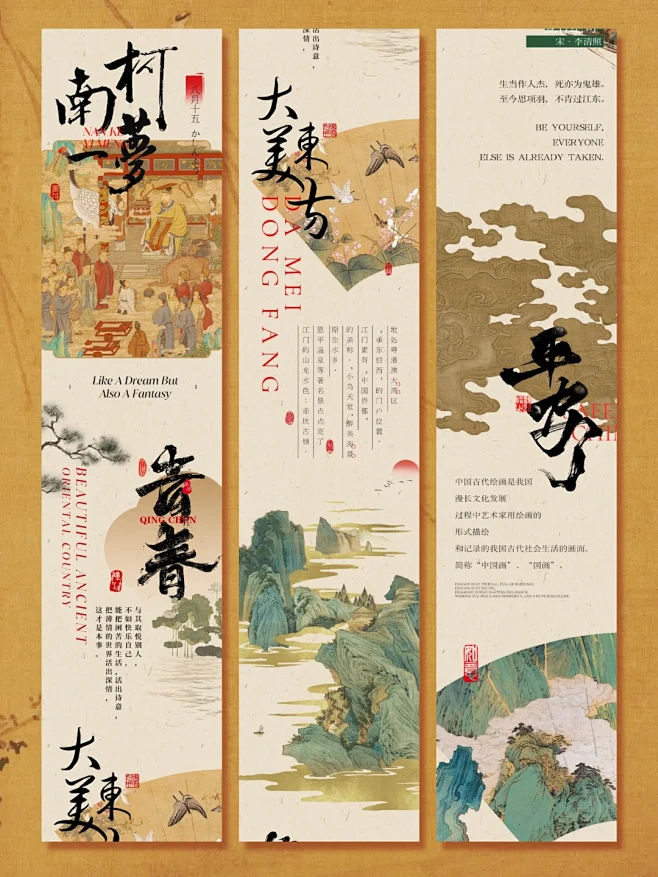 南柯一夢
八月十五
Like A Dream But
Also A Fantasy
BEAUTIFUL ANCIENT
ORIENTAL COUNTRY
青春
QING CHUN
与其取悦别人，
不如快乐自己，
能把困苦的生活，活出诗意，
把薄情的世界活出深情，
这才是本事。
大美東
活出诗意，
深情，
大美東方
DA MEI
DONG FANG
地处粤港澳大湾区
，承东启西，的门户位置，
江门素有，“中国侨都，
的美称，，小鸟天堂，醉美海景
原生水乡，
恩平温泉等著名景点点亮了
江门的山光水色：赤坎古镇，
宋·李清照
生当作人杰，死亦为鬼雄。
至今思项羽，不肯过江东。
BE YOURSELF,
EVERYONE
ELSE IS ALREADY TAKEN.
平安
中国古代绘画是我国
漫长文化发展
过程中艺术家用绘画的
形式描绘
和记录的我国古代社会生活的画面，
简称“中国画”、“国画”。